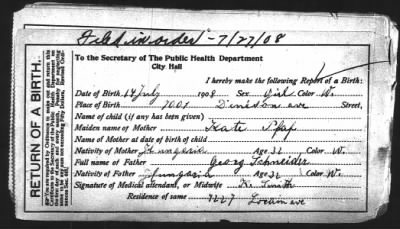 Filed in order - 7/27/08
To the Secretary of The Public Health Department
City Hall
I hereby make the following Report of a Birth:
Date of Birth 14 July 1908 Sex Girl Color W.
Place of Birth 7001 Denison ave Street,
Name of child (if any has been given)
Maiden name of Mother Kate
Name of Mother at date of birth of child
Nativity of Mother Hungaria Age 32 Color W.
Full name of Father Georg Schneider
Nativity of Father Hungaria Age 32 Color W.
Signature of Medical attendant, or Midwife K. Smith
Residence of same 7227 Lorain ave
RETURN OF A BIRTH.